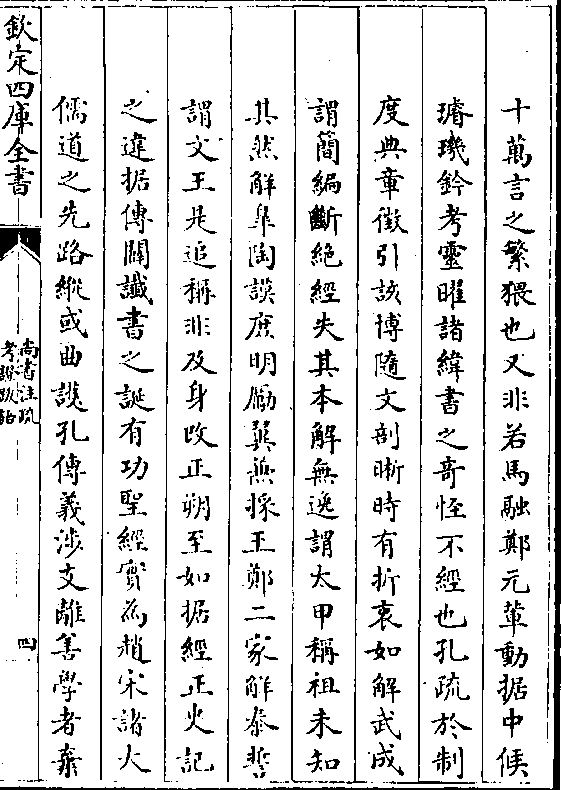 十萬言之繁猥也又非若馬融鄭元軰動据中候
璿璣鈐考靈曜諸緯書之奇怪不經也孔疏於制
度典章徴引該博隨文剖晰時有折衷如解武成
謂簡編斷絶經失其本解無逸謂太甲稱祖未知
其然解臯陶謨庶明勵翼兼採王鄭二家解泰誓
謂文王是追稱非及身改正朔至如据經正火記
之違据傳闢讖書之誕有功聖經實為趙宋諸大
儒道之先路縱或曲護孔傳義涉支離善學者棄
欽定四庫全書
尚書注疏
考證跋語
四